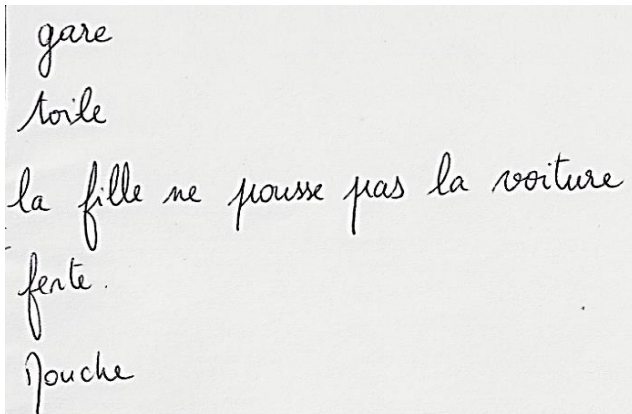 gare
toile
la fille ne pousse pas la voiture
fente.
Mouche